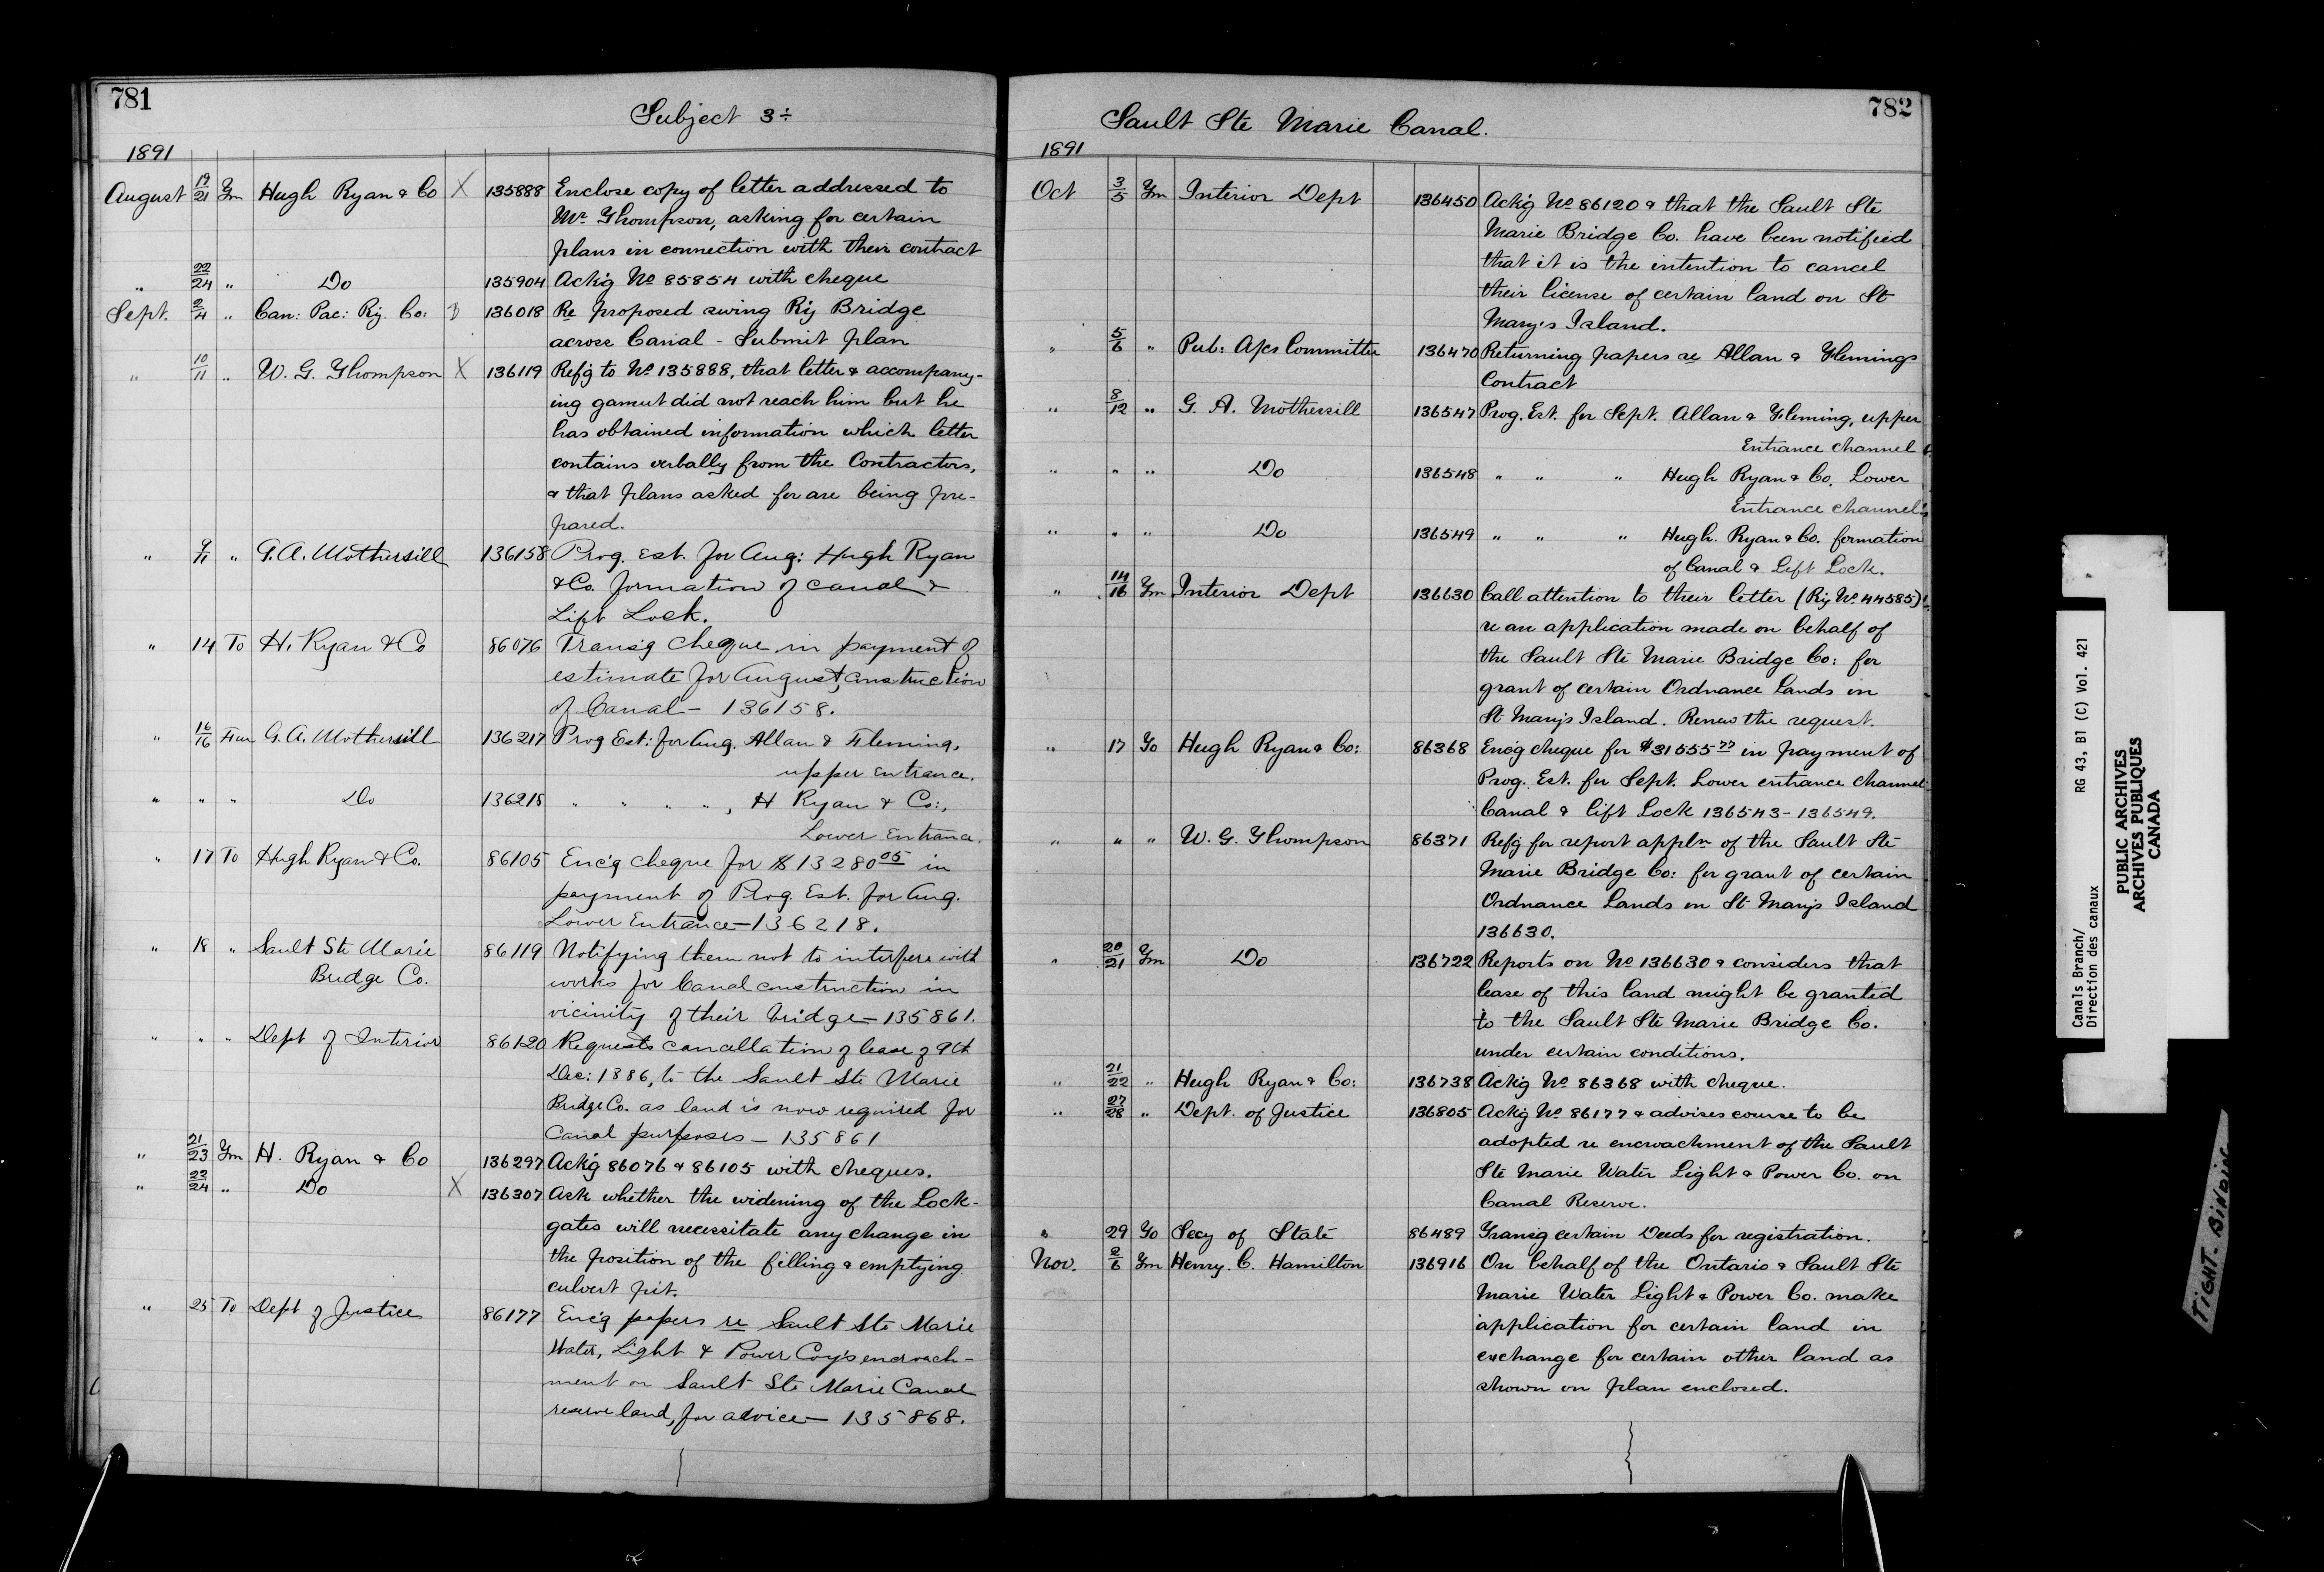 781
Subject 3÷
1891
August 19/21 Fm Hugh Ryan & Co X 135888 Enclose copy of letter addressed to
Mr. Thompson, asking for certain
plans in connection with their contract
" 22/24 " Do 135904 Ack'g No 85854 with cheque
Sept. 2/4 " Can: Pac: Ry. Co: 136018 Re proposed swing Ry Bridge
across Canal - Submit plan
" 10/11 " W. G. Thompson X 136119 Ref'g to No. 135888, that letter & accompany-
ing gamut did not reach him but he
has obtained information which letter
contains verbally from the Contractors,
& that plans asked for are being pre-
pared.
" 9/11 " G. A. Mothersill 136158 Prog. Est. for Aug: Hugh Ryan
& Co. formation of canal &
Lift Lock.
" 14 To H. Ryan & Co 86076 Trans'g cheque in payment of
estimate for August, construction
of Canal - 136158.
" 16/16 Fm G. A. Mothersill 136217 Prog Est: for Aug. Allan & Fleming,
upper entrance.
" " " Do 136218 " " " ", H Ryan & Co:,
Lower Entrance.
" 17 To Hugh Ryan & Co. 86105 Enc'g cheque for $13280 05 in
payment of Prog. Est. for Aug.
Lower Entrance - 136218.
" 18 " Sault Ste Marie 86119 Notifying them not to interfere with
Bridge Co. works for Canal construction in
vicinity of their bridge - 135861.
" " " Dept of Interior 86120 Requests cancellation of lease of 9th
Dec: 1886, to the Sault Ste Marie
Bridge Co. as land is now required for
Canal purposes - 135861
" 21/23 Fm H. Ryan & Co 136297 Ack'g 86076 & 86105 with cheques.
" 22/24 " Do X 136307 Ask whether the widening of the Lock-
gates will necessitate any change in
the position of the filling & emptying
culvert pit.
" 25 To Dept of Justice 86177 Enc'g papers re Sault Ste Marie
Water, Light & Power Coy's encroach-
ment on Sault Ste Marie Canal
reserve land, for advice - 135868.
782
Sault Ste Marie Canal.
1891
Oct 3/5 Fm Interior Dept 136450 Ack'g No 86120 & that the Sault Ste
Marie Bridge Co. have been notified
that it is the intention to cancel
their license of certain land on St
Mary's Island.
" 5/6 " Pub: A/cs Committee 136470 Returning papers re Allan & Flemings
Contract
" 8/12 " G. A. Mothersill 136547 Prog. Est. for Sept. Allan & Fleming, upper
Entrance channel
" " " Do 136548 " " " Hugh Ryan & Co. Lower
Entrance channel
" " " Do 136549 " " " Hugh. Ryan & Co. formation
of Canal & Lift Lock.
" 14/16 Fm Interior Dept 136630 Call attention to their letter (Ry No. 44585)
re an application made on behalf of
the Sault Ste Marie Bridge Co: for
grant of certain Ordnance Lands in
St Mary's Island. Renew the request.
" 17 To Hugh Ryan & Co: 86368 Enc'g cheque for $31555 77 in payment of
Prog. Est. for Sept. Lower entrance channel
Canal & lift Lock 136543-136549.
" " " W. G. Thompson 86371 Ref'g for report appln of the Sault Ste
Marie Bridge Co: for grant of certain
Ordnance Lands on St Mary's Island
136630.
" 20/21 Fm Do 136722 Reports on No 136630 & considers that
lease of this land might be granted
to the Sault Ste Marie Bridge Co.
under certain conditions.
" 21/22 " Hugh Ryan & Co: 136738 Ack'g No 86368 with cheque.
" 27/28 " Dept. of Justice 136805 Ack'g No 86177 & advises course to be
adopted re encroachment of the Sault
Ste Marie Water Light & Power Co. on
Canal Reserve.
" 29 To Secy of State 86489 Transg certain Deeds for registration.
Nov. 2/6 Fm Henry. C. Hamilton 136916 On behalf of the Ontario & Sault Ste
Marie Water Light & Power Co. make
application for certain land in
exchange for certain other land as
shown on plan enclosed.
Canals Branch/ RG 43, B1 (C) Vol. 421
Direction des canaux
PUBLIC ARCHIVES
ARCHIVES PUBLIQUES
CANADA
TIGHT BINDING